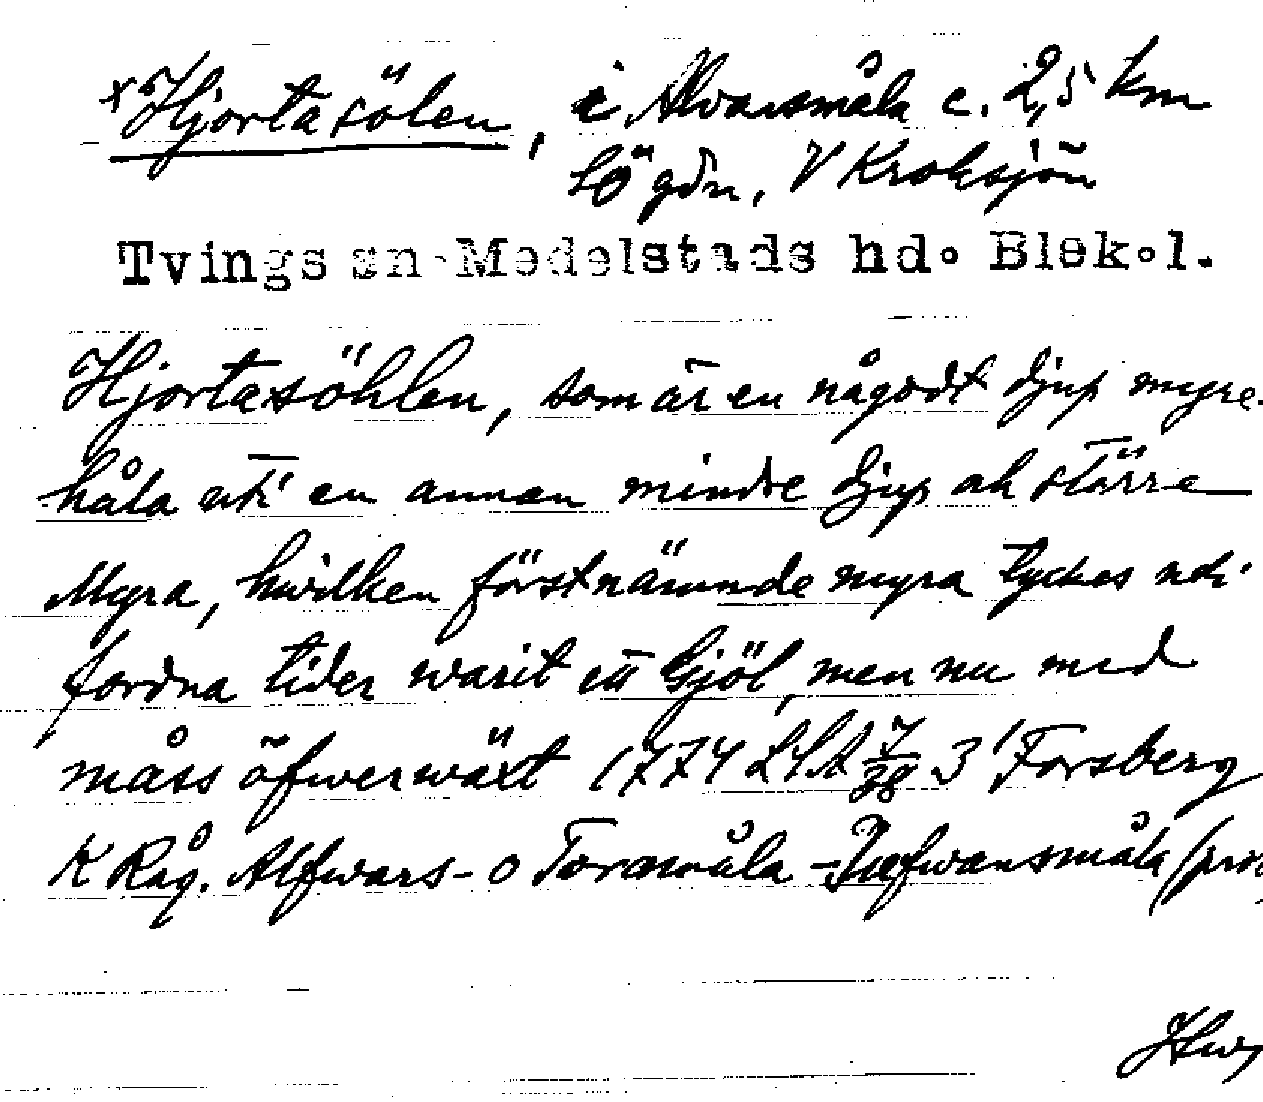 x Hjortasölen, i Alvarsmåla c. 2,5 km
SÖ gdn, V Kroksjön
Tvings sn. Medelstads hd. Blek.l.
Hjortasöhlen, som är en någodt djup myre-
håla uti en annan mindre djup ock större
Myra, hwilken förstnämnde myra tyckes uti
fordna tider warit ett Gjöl, men nu med
måss öfwerwäxt 1774 LSA 7/38 3 Forsberg
K Råg. Alfwars- o Tormåla - (prot